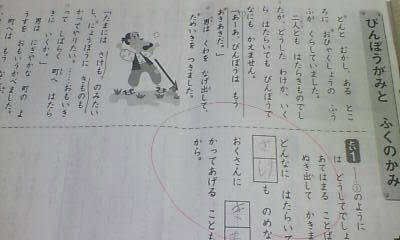 びんぼうがみと　ふくのかみ
どんと　むかし、ある　とこ
ろに　おひゃくしょうの　ふう
ふが　くらしていました。
二人とも　はたらきものでし
たが、どうした　わけか、いく
ら　はたらいても　びんぼうで
なにも　かえません。
「あーあ、びんぼうは　もう
あきあきだ。」
男は　くわを　なげ出して、
ためいきを　つきました。
「たまには　さけも　のみたい
し、にょうぼうに　きものも
かってやりたい。
って　しばらく　町へ　はたら
きに　いくか。」
男は　にぎやかな　町の　よ
うすを　おもいうかべました。
町では　もう
とい1
――①のように
は　どうしてでしょ
あてはまる　ことば
ぬき出して　かきま
どんなに　はたらいて
さけ
も　のめな
おくさんに
きも
かってあげる　ことも
から。